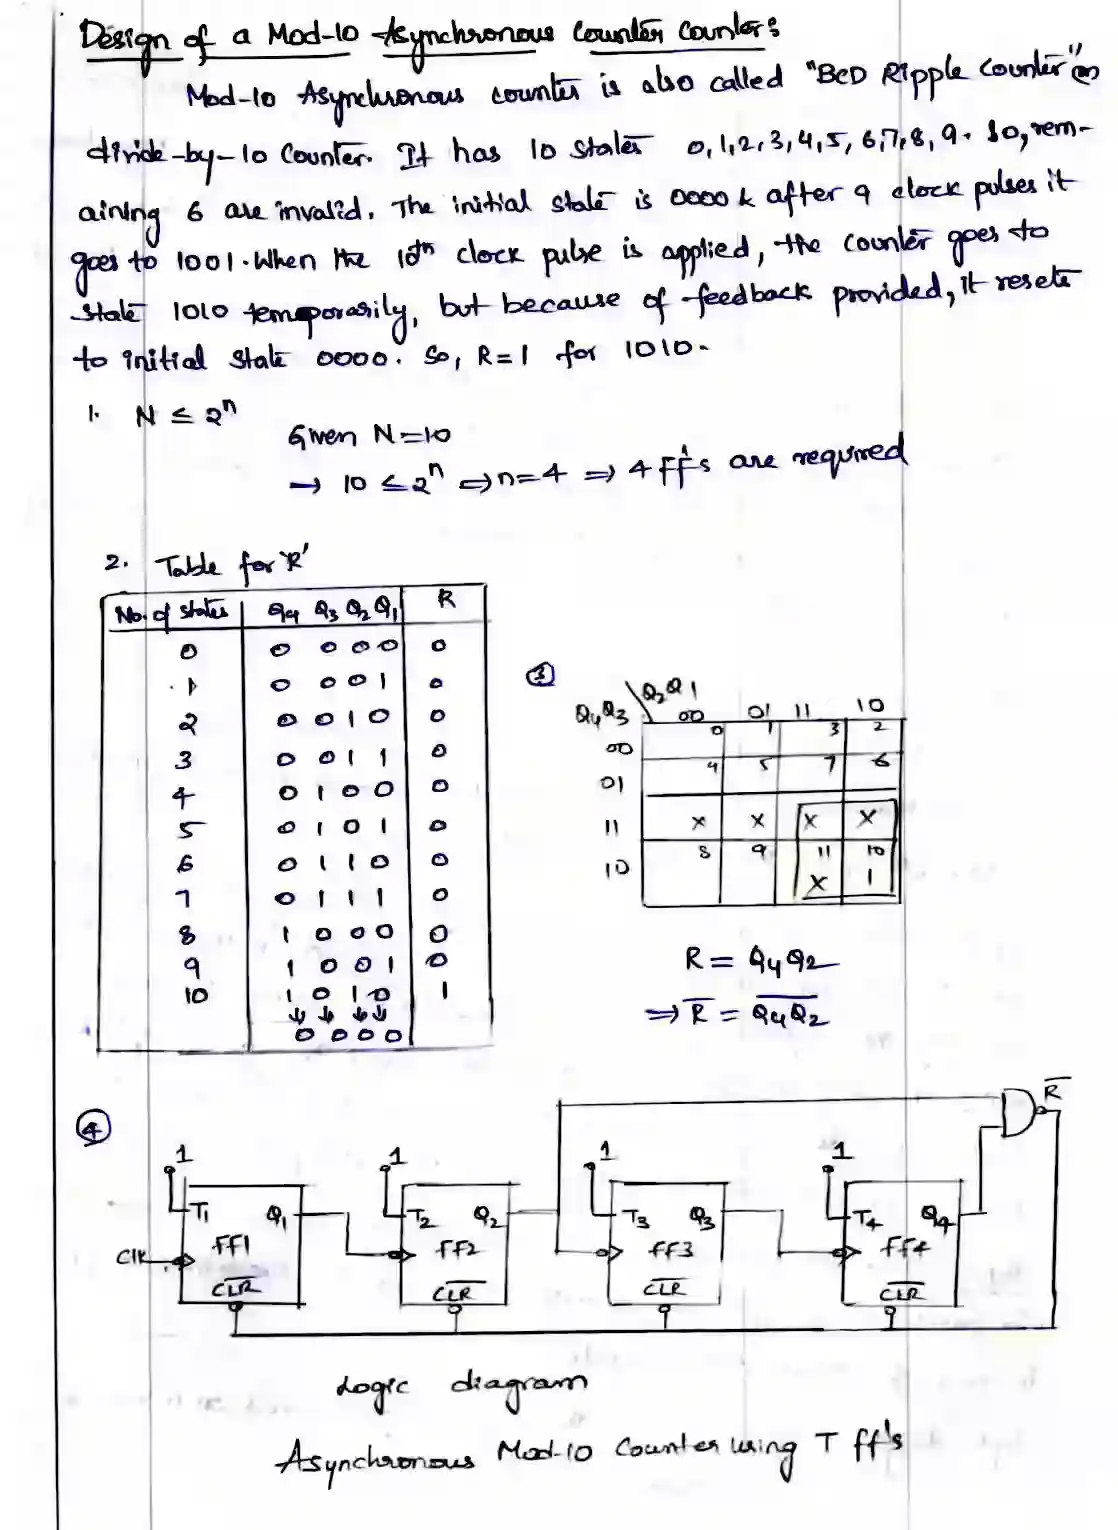 Design of a Mod-10 Asynchronous Counter Counter:
Mod-10 Asynchronous counter is also called "BCD Ripple Counter" (or)
divide-by-10 Counter. It has 10 states 0,1,2,3,4,5,6,7,8,9. So, rem-
aining 6 are invalid. The initial state is 0000 & after 9 clock pulses it
goes to 1001. When the 10th clock pulse is applied, the counter goes to
state 1010 temporarily, but because of feedback provided, it resets
to initial state 0000. So, R=1 for 1010.
1. N ≤ 2ⁿ
Given N=10
→ 10 ≤ 2ⁿ ⇒ n=4 ⇒ 4 ff's are required
2. Table for 'R'
No. of states Q4 Q3 Q2 Q1 R
0 0 0 0 0 0
1 0 0 0 1 0
2 0 0 1 0 0
3 0 0 1 1 0
4 0 1 0 0 0
5 0 1 0 1 0
6 0 1 1 0 0
7 0 1 1 1 0
8 1 0 0 0 0
9 1 0 0 1 0
10 1 0 1 0 1
↓ ↓ ↓ ↓
0 0 0 0
3
Q2Q1
Q4Q3 00 01 11 10
00 0 1 3 2
01 4 5 7 6
11 X X X X
10 8 9 11 10
X 1
R = Q4Q2
⇒ R̅ = Q̅4̅Q̅2̅
4
R̅
1 1 1 1
T1 Q1 T2 Q2 T3 Q3 T4 Q4
Clk FF1 FF2 FF3 FF4
C̅L̅R̅ C̅L̅R̅ C̅L̅R̅ C̅L̅R̅
Logic diagram
Asynchronous Mod-10 Counter using T ff's